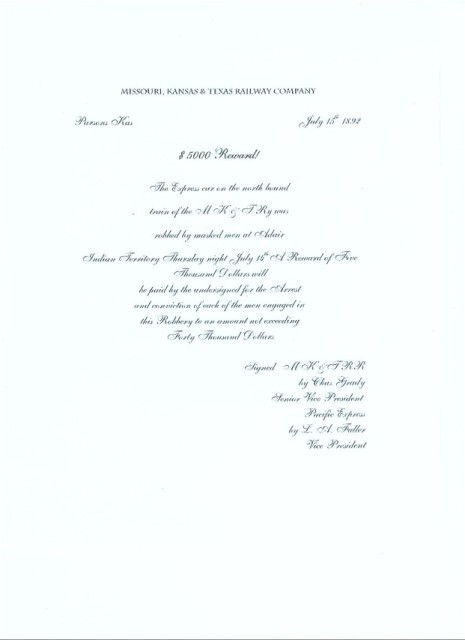 MISSOURI, KANSAS & TEXAS RAILWAY COMPANY
Parsons Kas July 15th 1892
$ 5000 Reward!
The Express car on the north bound
train of the M K & T Ry was
robbed by masked men at Adair
Indian Territory Thursday night July 14th A Reward of Five
Thousand Dollars will
be paid by the undersigned for the Arrest
and conviction of each of the men engaged in
this Robbery to an amount not exceeding
Forty Thousand Dollars
Signed M K & T R R
by Chas Grady
Senior Vice President
Pacific Express
by L. A. Fuller
Vice President